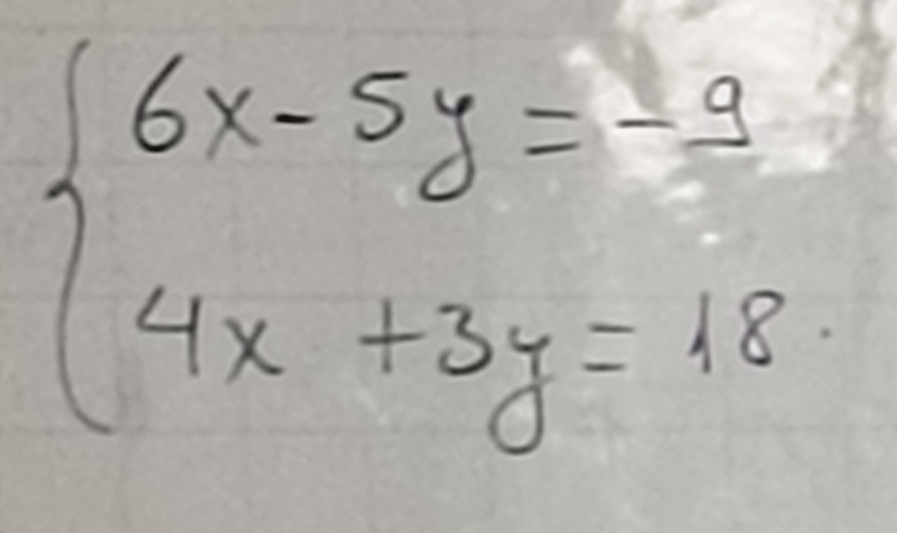 6x - 5y = -9
4x + 3y = 18.